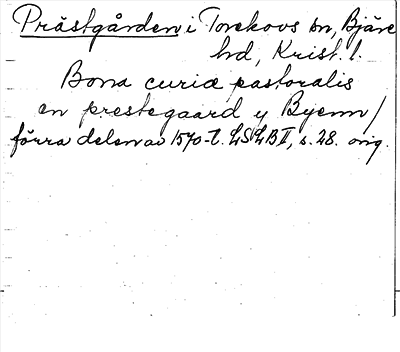 Prästgården i Torekovs sn, Bjäre
hd, Krist. l.
Bona curiæ pastoralis
en prestegaard y Byenn /
förra delen av 1570-t. LSLB II, s. 28. orig.